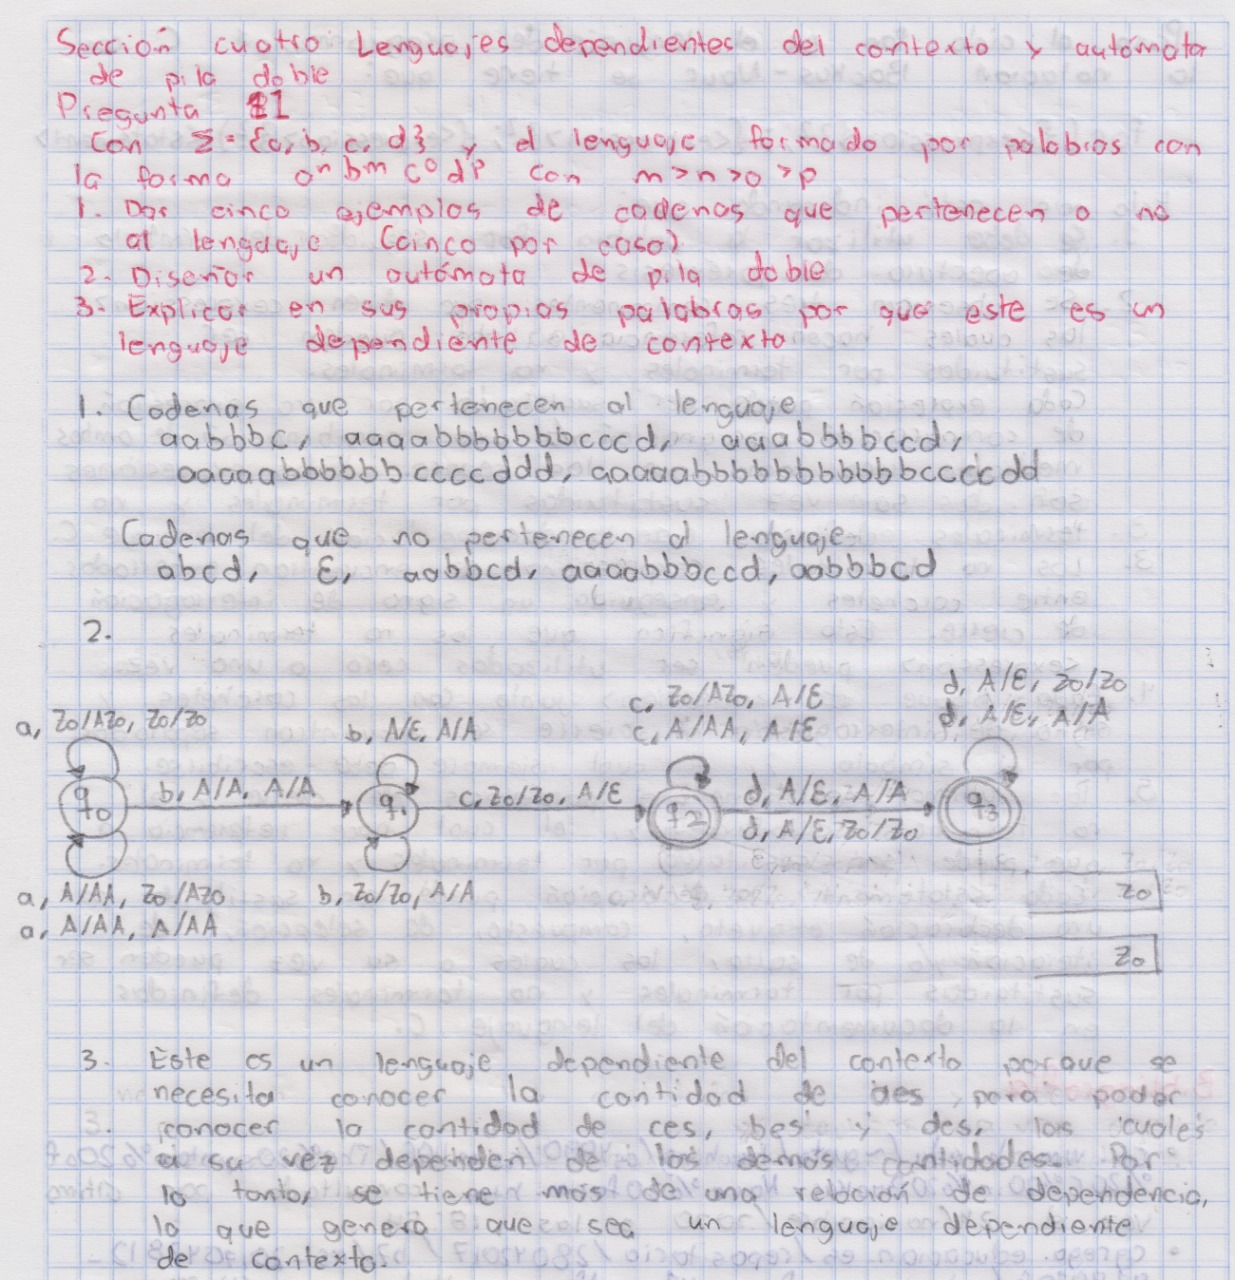 Sección cuatro Lenguajes dependientes del contexto y autómata
de pila doble
Pregunta 1
Con Σ = {a, b, c, d} y el lenguaje formado por palabras con
la forma aⁿ bᵐ cᵒ dᵖ con m > n > o > p
1. Dar cinco ejemplos de cadenas que pertenecen o no
al lenguaje (cinco por caso)
2. Diseñar un autómata de pila doble
3. Explicar en sus propias palabras por que este es un
lenguaje dependiente de contexto
1. Cadenas que pertenecen al lenguaje
aabbbc, aaaabbbbbbbcccd, aaabbbbccd,
aaaaabbbbbbccccddd, aaaaabbbbbbbbbbbccccdd
Cadenas que no pertenecen al lenguaje
abcd, ε, aabbcd, aaaabbbccd, aabbbcd
2.
d, A/ε, Z0/Z0
d, A/ε, A/A
c, Z0/AZ0, A/ε
c, A/AA, A/ε
a, Z0/AZ0, Z0/Z0
b, A/ε, A/A
q0
b, A/A, A/A
q1
c, Z0/Z0, A/ε
q2
d, A/ε, A/A
d, A/ε, Z0/Z0
q3
a, A/AA, Z0/AZ0
a, A/AA, A/AA
b, Z0/Z0, A/A
Z0
Z0
3. Este es un lenguaje dependiente del contexto porque se
necesita conocer la cantidad de aes, para poder
conocer la cantidad de ces, bes y des, los cuales
a su vez dependen de las demás cantidades. Por
lo tanto, se tiene más de una relación de dependencia,
lo que genera que sea un lenguaje dependiente
de contexto.